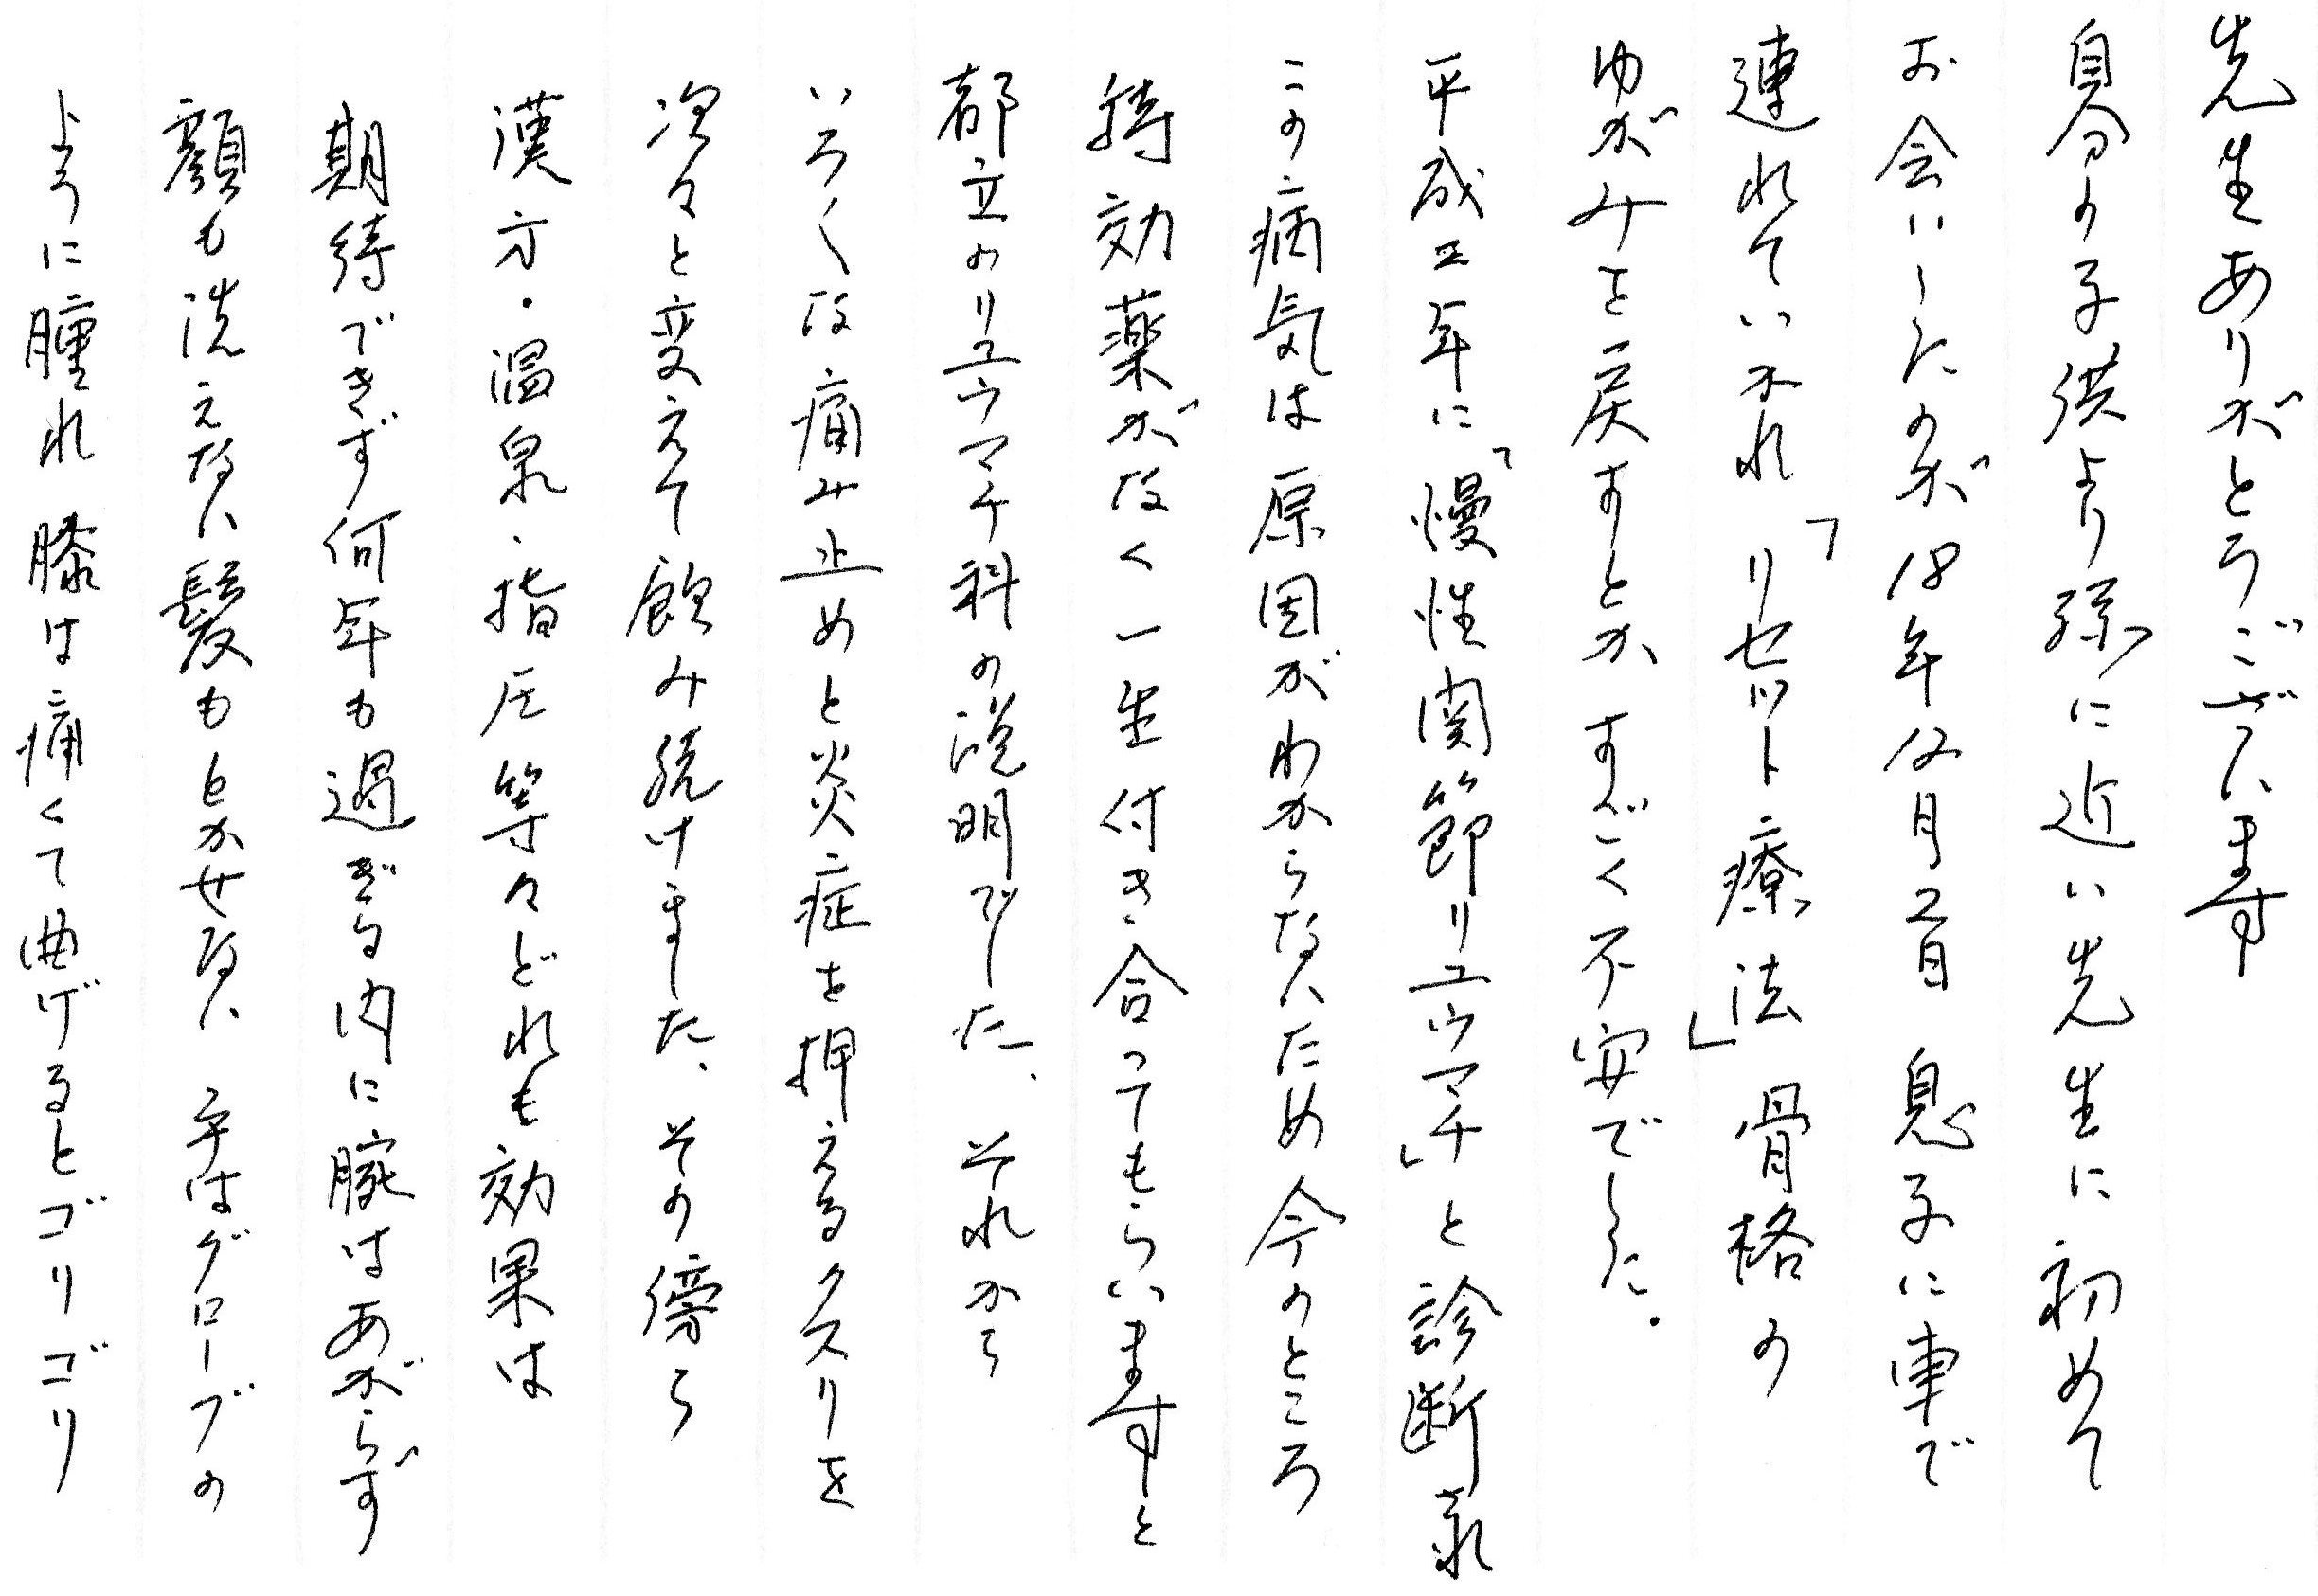 先生ありがとうございます
自分の子供より孫に近い先生に初めて
お会いしたのが18年12月2日 息子に車で
連れていかれ「リセット療法」骨格の
ゆがみを戻すとか すごく不安でした.
平成二年に「慢性関節リュウマチ」と診断され
この病気は原因がわからないため今のところ
特効薬がなく一生付き合ってもらいますと
都立のリュウマチ科の説明でした、それから
いろ〱な痛み止めと炎症を押えるクスリを
次々と変えて飲み続けました、その傍ら
漢方・温泉・指圧等々どれも効果は
期待できず何年も過ぎる内に腕はあがらず
顔も洗えない髪もとかせない 手はグローブの
ように腫れ膝は痛くて曲げるとゴリゴリ